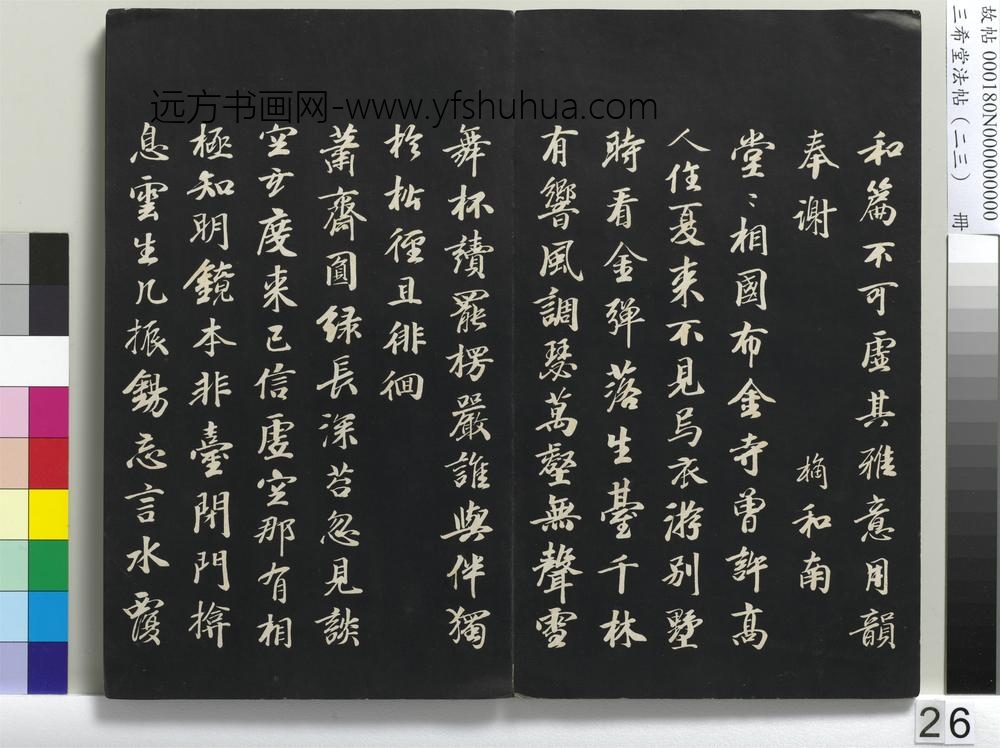 和篇不可虛其雅意用韻
奉謝 楠和南
堂〻相國布金寺曾許高
人住夏来不見烏衣游别墅
時看金彈落生臺千林
有響風調瑟萬壑無聲雪
舞杯讀罷楞嚴誰與伴獨
於松徑且徘徊
蕭齋圓緑長深苔忽見談
空玄度来已信虚空那有相
極知明鏡本非臺閉門揜
息雲生几振錫忘言水覆
远方书画网-www.yfshuhua.com
故帖 000180N000000000
三希堂法帖（二三） 冊
26